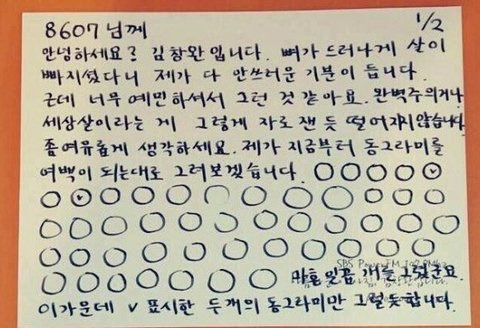 8607님께
1/2
안녕하세요? 김창완입니다. 뼈가 드러나게 살이
빠지셨다니 제가 다 안쓰러운 기분이 듭니다.
근데 너무 예민하셔서 그런 것 같아요. 완벽주의거나
세상살이라는 게 그렇게 자로 잰 듯 떨어지지않습니다
좀 여유롭게 생각하세요. 제가 지금부터 동그라미를
여백이 되는대로 그려보겠습니다.
SBS PowerFM 107.7Mhz
마흔 일곱 개를 그렸군요.
이 가운데 v 표시한 두 개의 동그라미만 그럴듯합니다.